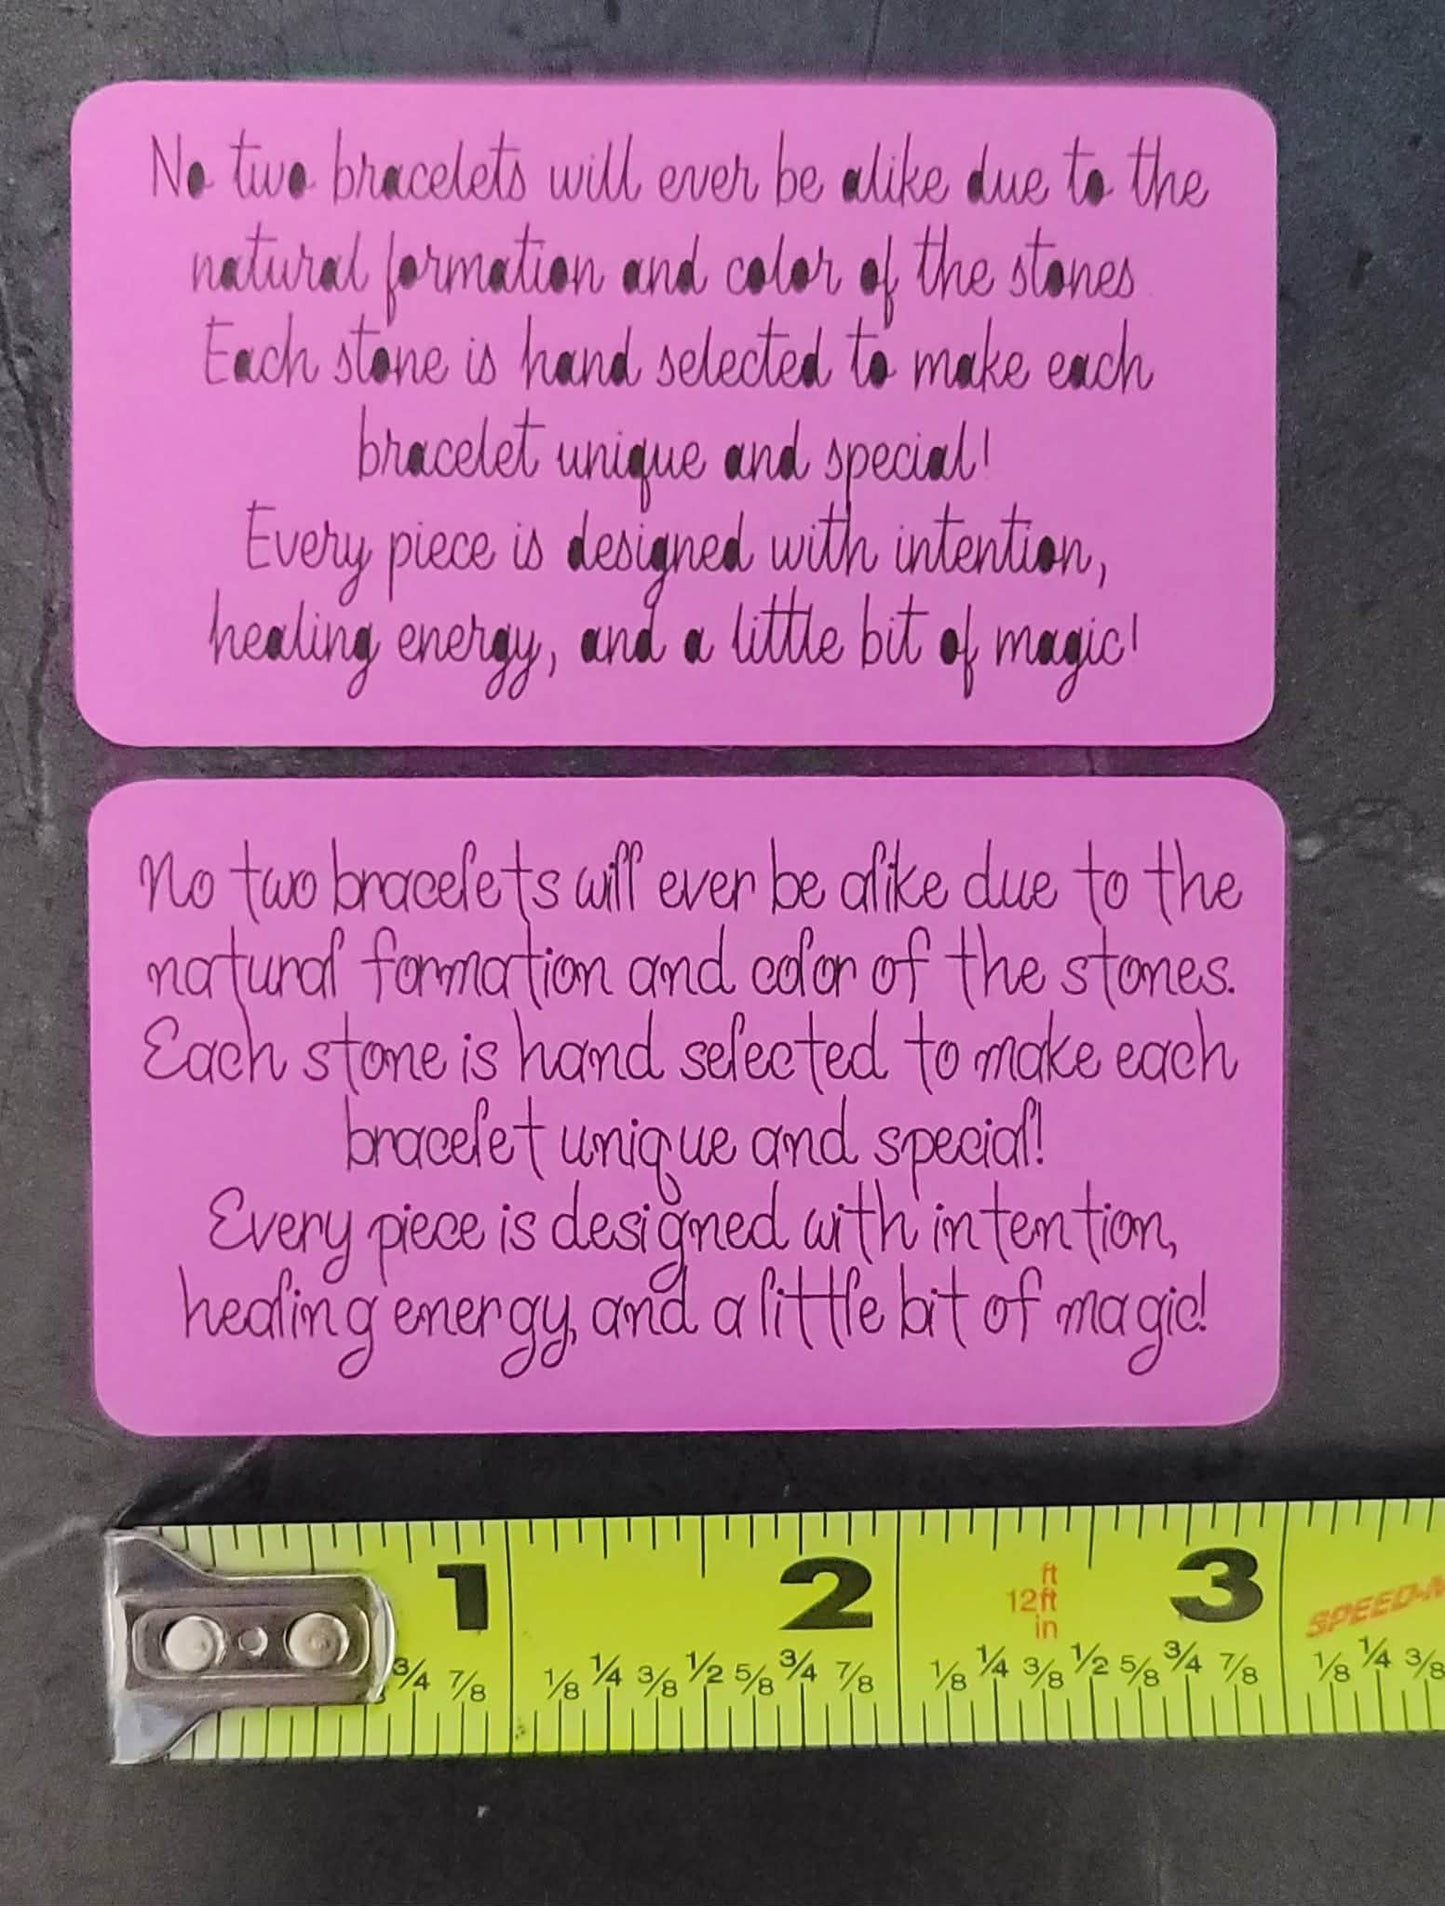 No two bracelets will ever be alike due to the
natural formation and color of the stones
Each stone is hand selected to make each
bracelet unique and special!
Every piece is designed with intention,
healing energy, and a little bit of magic!
No two bracelets will ever be alike due to the
natural formation and color of the stones.
Each stone is hand selected to make each
bracelet unique and special!
Every piece is designed with intention,
healing energy, and a little bit of magic!
1 2 3
ft
12ft
in
3/4 7/8 1/8 1/4 3/8 1/2 5/8 3/4 7/8 1/8 1/4 3/8 1/2 5/8 3/4 7/8 1/8 1/4 3/8